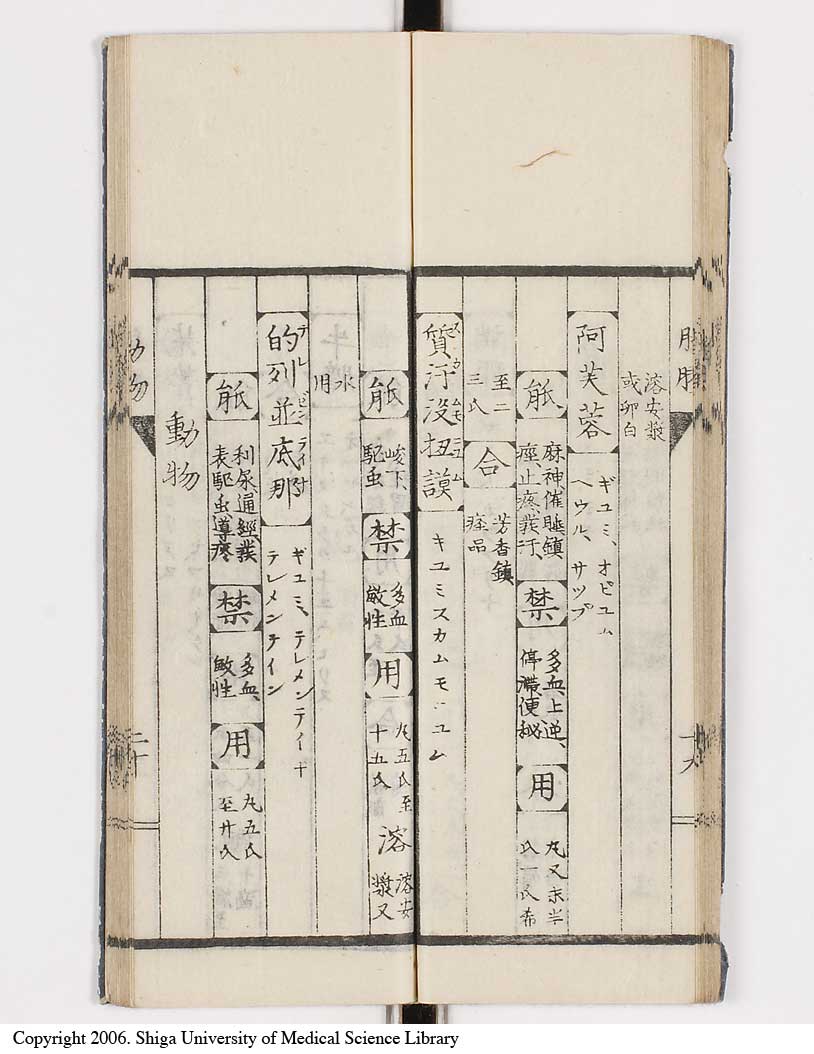 溶安漿
或卵白
阿芙蓉 ギユミ、オピユム
ヘウル、サツプ
能 麻神催睡鎮
痙止疼発汗、 禁 多血上逆、
停滞便秘 用 丸又末半
氏一氏希
至二
三氏 合 芳香鎮
痙品
質汗没扭謨 キユミスカムモニユム
スカムモニユム
能 峻下
駆虫 禁 多血
敏性 用 丸五氏至
十五氏 溶 溶安
漿又
水
用
的列並底那 ギユミ、テレメンテイナ
テレメンテイン
テレビンテイナ
能 利尿通經發
表駆虫導瘮 禁 多血、
敏性 用 丸五氏
至廿氏
動物
動物
二十
Copyright 2006. Shiga University of Medical Science Library